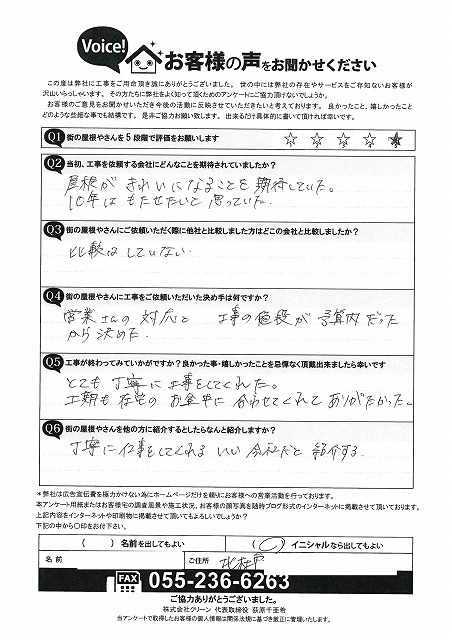 Voice!
お客様の声をお聞かせください
この度は弊社に工事をご用命頂き誠にありがとうございました。世の中には弊社の存在やサービスをご存知ないお客様が
沢山いらっしゃいます。その方たちに弊社をよく知って頂くためのアンケートにご協力頂けないでしょうか。
お客様のご意見をお聞かせいただき今後の活動に反映させていただきたいと考えております。良かったこと、嬉しかったこと
どのような些細な事でも結構です。是非ご協力お願い致します。出来るだけ具体的に書いて頂ければ幸いです。
Q1 街の屋根やさんを5段階で評価をお願いします ☆ ☆ ☆ ☆ ★
Q2 当初、工事を依頼する会社にどんなことを期待されていましたか?
屋根が きれいになることを期待していた。
10年は もたせたいと思っていた.
Q3 街の屋根やさんにご依頼いただく際に他社と比較しました方はどこの会社と比較しましたか?
比較はしていない.
Q4 街の屋根やさんに工事をご依頼いただいた決め手は何ですか?
営業さんの 対応と 工事の値段が 予算内だった
から決めた.
Q5 工事が終わってみていかがですか?良かった事・嬉しかったことを忌憚なく頂戴出来ましたら幸いです
とても 丁寧に工事をしてくれた。
工期も 在宅の お仕事に合わせてくれて ありがたかった。
Q6 街の屋根やさんを他の方に紹介するとしたらなんと紹介しますか?
丁寧に仕事をしてくれる いい会社だと 紹介する.
*弊社は広告宣伝費を極力かけない為にホームページだけを頼りにお客様への営業活動を行っております。
本アンケート用紙またはお客様宅の調査風景や施工状況、お客様の顔写真を随時ブログ形式のインターネットに掲載させて頂いております。
上記内容をインターネットや印刷物に掲載させて頂いてもよろしいでしょうか?
下記の中から〇印をお付け下さい。
( ) 名前を出してもよい (〇) イニシャルなら出してもよい
名前 ご住所 北杜市
FAX 055-236-6263
ご協力ありがとうございました。
株式会社クリーン 代表取締役 荻原千亜希
当アンケートで取得したお客様の個人情報は関係法規に基づき厳正に管理いたします。